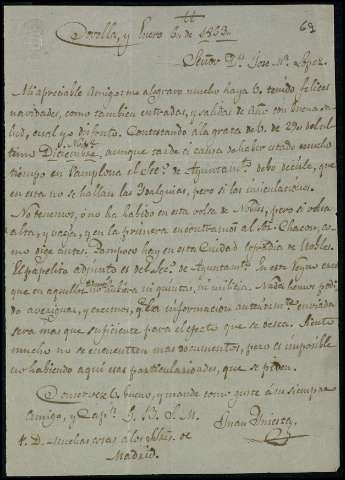 69
Corella, y Enero 6, de 1803.
Señor Dn. Jose Ma. Lopez.
Mi apreciable Amigo: me alegraré mucho haya V. tenido felices
navidades, como tambien entradas, y salidas de Año con buena sa-
lud, cual yo disfruto. Contestando á la grata de V. de 29, del ul-
timo Diciembre, aunque tarde á causa de haber estado mucho
tiempo en Pamplona el Sec.o de Ayuntam.to debo decirle, que
en esta no se hallan las Ydalguias, pero si las
No tenemos, o no ha habido en esta volsa de Nobles, pero si volsa
alta, y vaja, y en la primera encontramos al Sr. Chacon, co-
mo dice antes. Tampoco hay en esta Ciudad cofradia de Nobles.
El papelito adjunto es del Sec.o de Ayuntam.to En este Reyno creo
que en aquellos no hubiera ni quintas, ni milicia. Nada hemos podi-
do averiguar, y creemos, que la informacion enviada
sera mas que suficiente para el efecto que se desea. Siento
mucho no se encuentren mas documentos, pero es imposible
no habiendo aqui esas particularidades, que se piden.
Conservese V. bueno, y mande como guste á su siempre
Amigo, y Cap.n Q. B. S. M.
Juan
P. D. Muchas cosas a los de
Madrid.